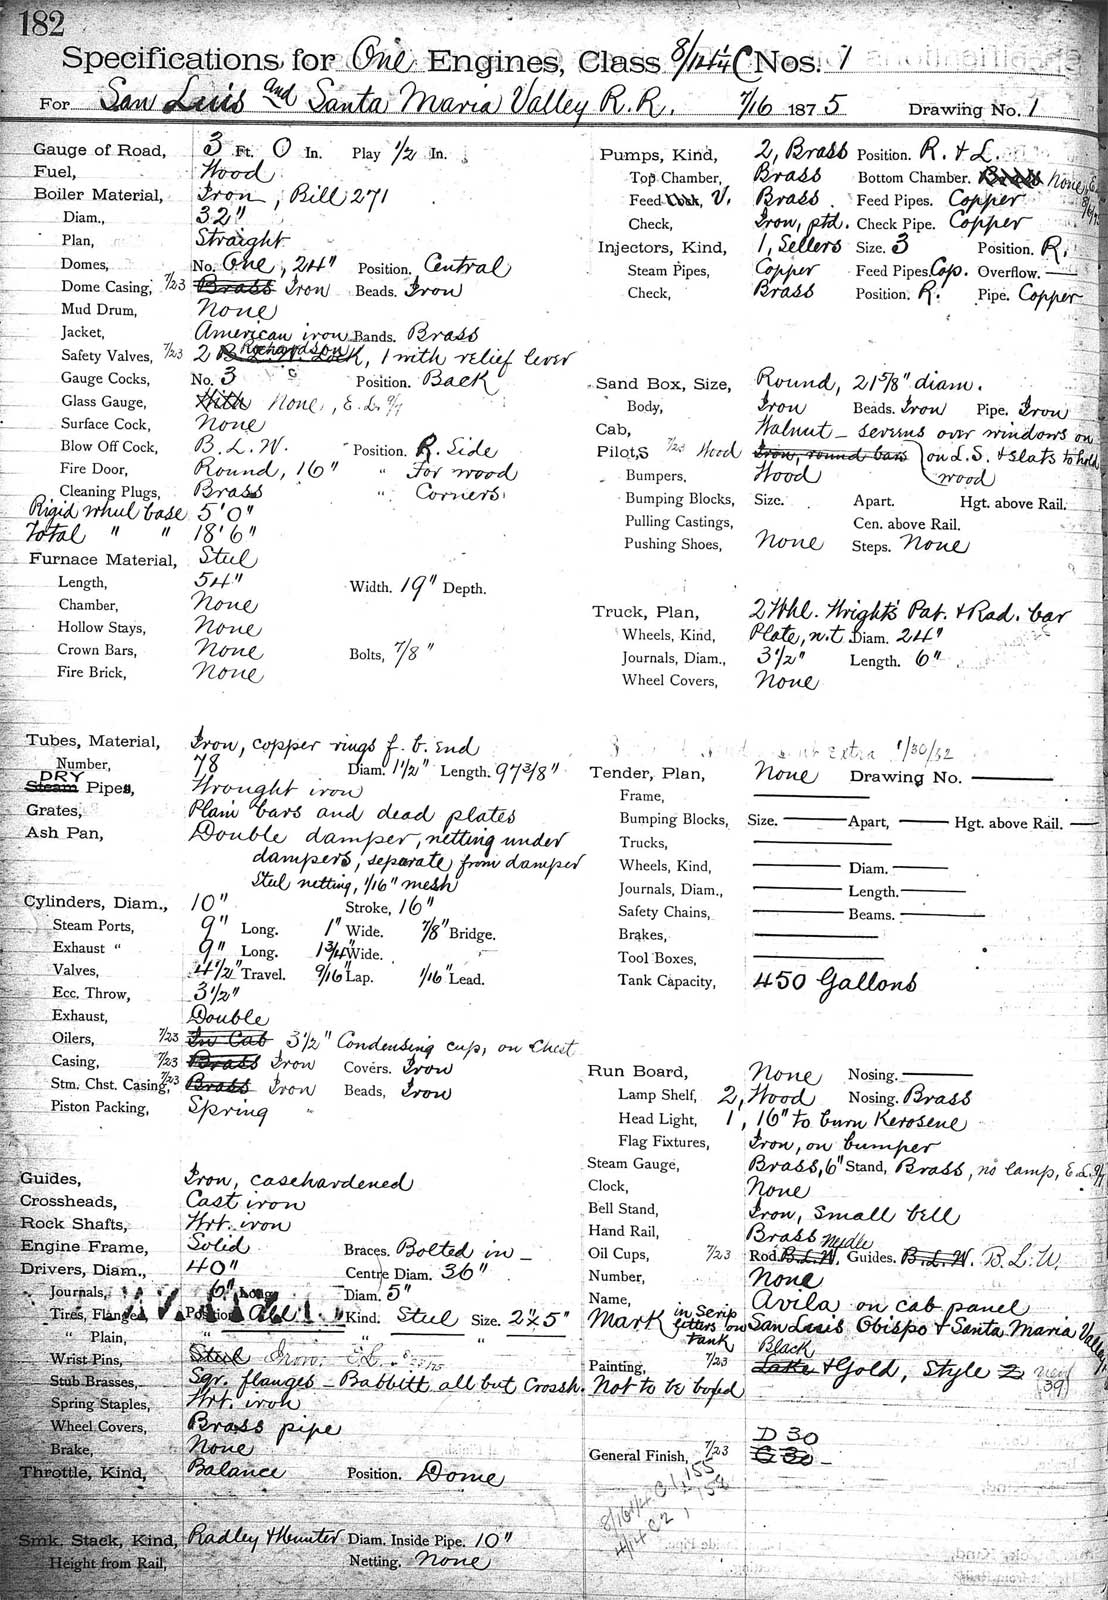 182
Specifications for One Engines, Class 8/12 1/4 C Nos. 1
For San Luis and Santa Maria Valley R.R. 7/16 1875 Drawing No. 1
Gauge of Road, 3 Ft. 0 In. Play 1/2 In.
Fuel, Wood
Boiler Material, Iron, Bill 271
Diam., 32"
Plan, Straight
Domes, No. One, 24" Position. Central
Dome Casing, 7/23 Brass Iron Beads. Iron
Mud Drum, None
Jacket, American iron Bands. Brass
Safety Valves, 7/23 2 Richardson, 1 with relief lever
Gauge Cocks, No. 3 Position. Back
Glass Gauge, With None, E.L. 9/7
Surface Cock, None
Blow Off Cock, B.L.W. Position. R. Side
Fire Door, Round, 16" " For wood
Cleaning Plugs, Brass " Corners
Rigid wheel base 5' 0"
Total " " 18' 6"
Furnace Material, Steel
Length, 54" Width. 19" Depth.
Chamber, None
Hollow Stays, None
Crown Bars, None Bolts, 7/8"
Fire Brick, None
Tubes, Material, Iron, copper rings f. b. end
Number, 78 Diam. 1 1/2" Length. 97 3/8"
DRY
Steam Pipes, Wrought iron
Grates, Plain bars and dead plates
Ash Pan, Double damper, netting under
dampers, separate from damper
Steel netting, 1/16" mesh
Cylinders, Diam., 10" Stroke, 16"
Steam Ports, 9" Long. 1" Wide. 7/8" Bridge.
Exhaust " 9" Long. 1 3/4" Wide.
Valves, 4 1/2" Travel. 9/16" Lap. 1/16" Lead.
Ecc. Throw, 3 1/2"
Exhaust, Double
Oilers, 7/23 In Cab 3 1/2" Condensing cup, on Chest
Casing, 7/23 Brass Iron Covers. Iron
Stm. Chst. Casing, 7/23 Brass Iron Beads, Iron
Piston Packing, Spring
Guides, Iron, casehardened
Crossheads, Cast iron
Rock Shafts, Wrt. iron
Engine Frame, Solid Braces. Bolted in
Drivers, Diam., 40" Centre Diam. 36"
Journals, 6" Long. Diam. 5"
Tires, Flanged Position All Kind. Steel Size. 2" x 5"
" Plain, " " "
Wrist Pins, Steel Iron E.L.
Stub Brasses, Sqr. flanges - Babbitt all but Crossh.
Spring Staples, Wrt. iron
Wheel Covers, Brass pipe
Brake, None
Throttle, Kind, Balance Position. Dome
Smk. Stack, Kind, Radley & Hunter Diam. Inside Pipe. 10"
Height from Rail, Netting. None
Pumps, Kind, 2, Brass Position. R. & L.
Top Chamber, Brass Bottom Chamber. Brass None, E.L.
Feed Cock, V. Brass Feed Pipes. Copper
Check, Iron, ptd. Check Pipe. Copper
Injectors, Kind, 1, Sellers Size. 3 Position. R.
Steam Pipes, Copper Feed Pipes. Cop. Overflow. —
Check, Brass Position. R. Pipe. Copper
Sand Box, Size, Round, 21 5/8" diam.
Body, Iron Beads. Iron Pipe. Iron
Cab, Walnut - severns over windows on
Pilots, 7/23 Wood Iron, round bars on L.S. & slats to hold
Bumpers, Wood wood
Bumping Blocks, Size. Apart. Hgt. above Rail.
Pulling Castings, Cen. above Rail.
Pushing Shoes, None Steps. None
Truck, Plan, 2 Whl. Wright's Pat. & Rad. bar
Wheels, Kind, Plate, n.t. Diam. 24"
Journals, Diam., 3 1/2" Length. 6"
Wheel Covers, None
Extra 1/30/82
Tender, Plan, None Drawing No. —
Frame, —
Bumping Blocks, Size. — Apart, — Hgt. above Rail. —
Trucks, —
Wheels, Kind, — Diam. —
Journals, Diam., — Length. —
Safety Chains, — Beams. —
Brakes, —
Tool Boxes, —
Tank Capacity, 450 Gallons
Run Board, None Nosing. —
Lamp Shelf, 2, Wood Nosing. Brass
Head Light, 1, 16" to burn Kerosene
Flag Fixtures, Iron, on bumper
Steam Gauge, Brass, 6" Stand, Brass, no lamp, E.L. 9/7
Clock, None
Bell Stand, Iron, small bell
Hand Rail, Brass
Oil Cups, 7/23 Rod. B.L.W. Needle Guides. B.L.W. B.L.W.
Number, None
Name, Avila on cab panel
Mark in scrip letters on tank San Luis Obispo & Santa Maria Valley
Black
Painting, 7/23 Lake & Gold, Style 2 (39)
Not to be boxed
D 30
General Finish, 7/23 C 30
8/16 1/4 C 1, 155
4/14 C 2, 158